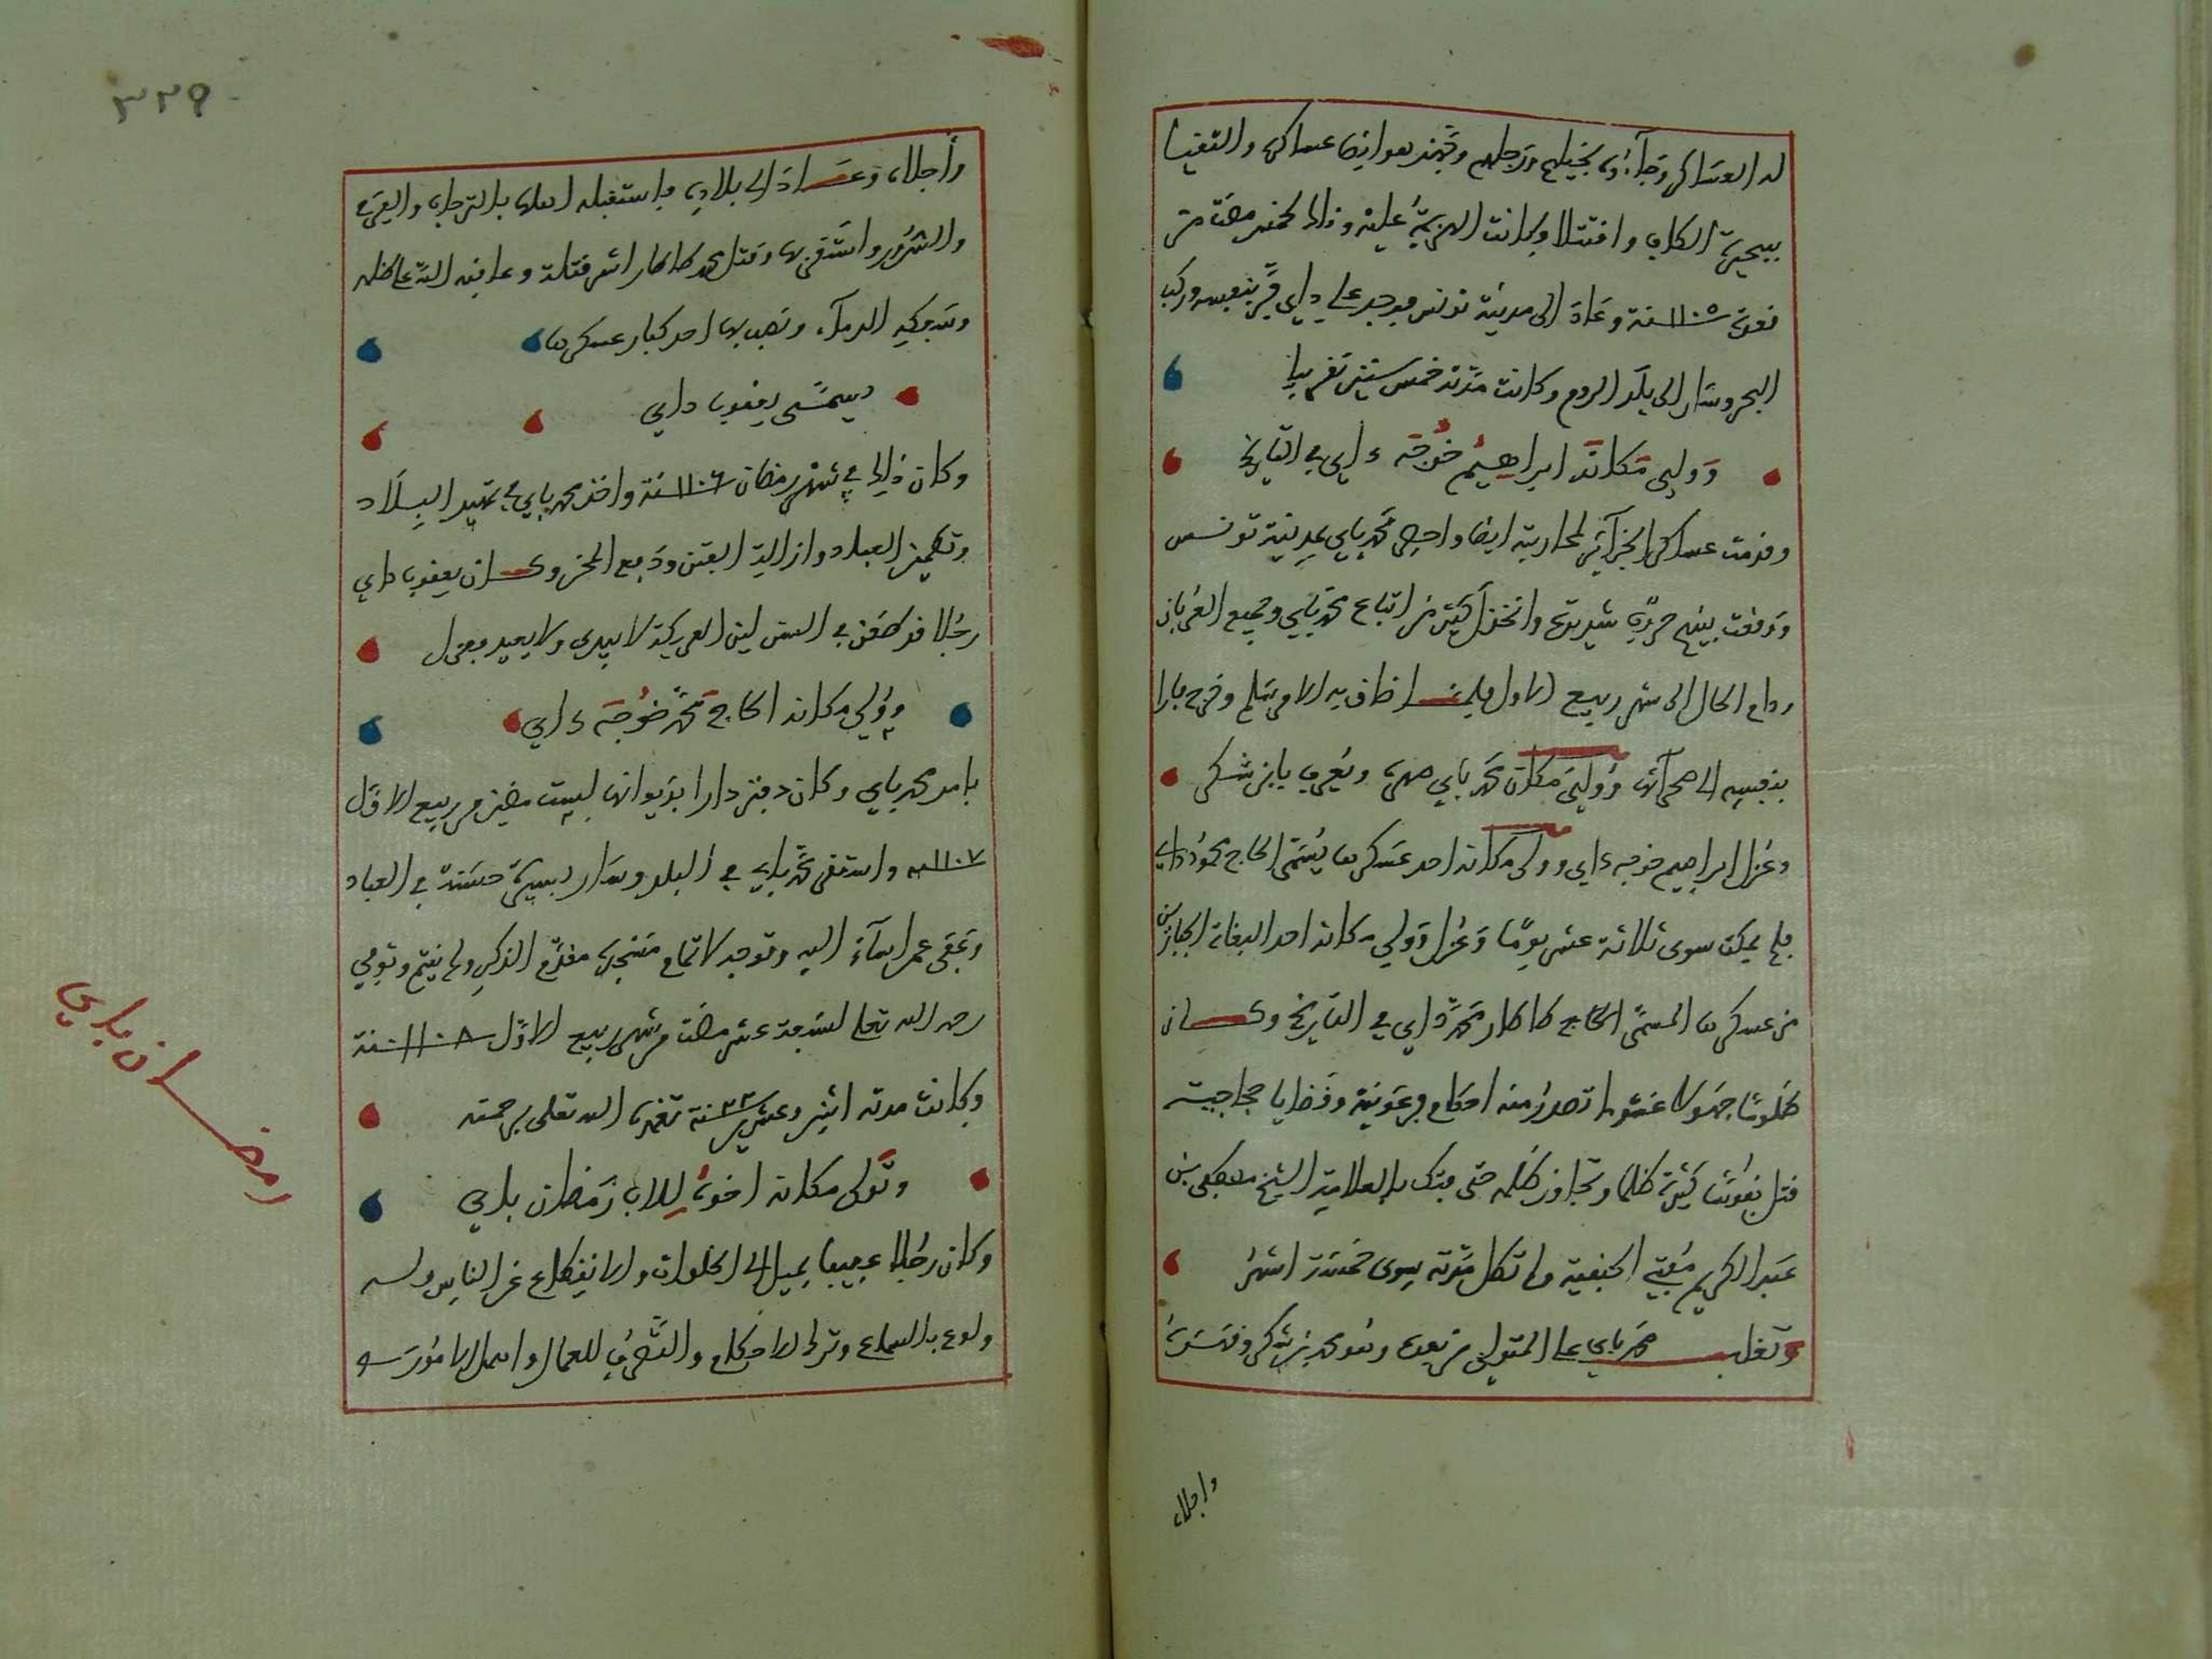 له العساكر وجاءوا بخيلهم ورجلهم وجهز هو ايضا عساكره والتقيا
ببحيرة الكاف واقتتلا وكانت الهزيمة عليه وذلك لخمس مضت من
سنة ١١٠٥ وعاد الى مدينة تونس فوجد علي داي فر بنفسه وركب
البحر وسار الى بلد الروم وكانت مدته خمس سنين تقريبا
وولي مكانه ابراهيم خوجه داي في التاريخ
وقدمت عساكر الجزائر لمحاربته ايضا واحصر محمد باي بمدينة تونس
ووقعت بينهم حروب شديدة وانخذل كثير من اتباع محمد باي وجميع العربان
ودام الحال الى شهر ربيع الاول فلما ضاق به الامر سلم وخرج فارا
بنفسه الى صحرائها وولي مكان محمد باي صهره ويعرف بابن شكر
وعزل ابراهيم خوجه داي وولي مكانه احد عسكرها يسمى الحاج محمود داي
فلم يمكث سوى ثلاثة عشر يوما وعزل وولي مكانه احد البغاة الجبارين
من عسكرها المسمى الحاج طاطار محمد داي في التاريخ وكان
ظلوما جهولا غشوما تصدر منه احكام فرعونية وقضايا حجاجية
قتل نفوسا كثيرة ظلما وتجاوز ظلمه حتى فتك بالعلامة الشيخ مصطفى بن
عبد الكريم مفتي الحنفية ولم تطل مدته سوى خمسة اشهر
وتغلب محمد باي على المتولي من بعده وهو محمد بن شكر وقهره
واجلاه
٣٢٩
واجلاه وعاد الى بلاده فاستقبله اهلها بالترحاب والفرح
والسرور واستقر بها وقتل محمد طاطار اشر قتلة وعاقبه الله على ظلمه
وسفكه الدماء ونصب بها احد كبار عسكرها
يسمى يعقوب داي
وكان ذلك في شهر رمضان سنة ١١٠٦ واخذ محمد باي في تمهيد البلاد
وتطمين العباد وازالة الفتن ودفع المحن وكان يعقوب داي
رجلا قد طعن في السن لين العريكة لا يبدي ولا يعيد فعزل
وولي مكانه الحاج محمد خوجه داي
بامر محمد باي وكان دفتردارا بديوانها لست مضين من ربيع الاول
سنة ١١٠٧ واستقر محمد باي في البلد وسار بسيرة حسنة في العباد
وعفى عمن اساء اليه وتوجه لاتمام مسجده مقدم الذكر ولم يتم وتوفي
رحمه الله تعالى لسبعة عشر مضت من شهر ربيع الاول سنة ١١٠٨
وكانت مدته اثنين وعشرين ٢٢ سنة تغمده الله تعالى برحمته
وتولى مكانه اخوه للاب رمضان باي
وكان رجلا عجيبا يميل الى الخلوات والانقطاع عن الناس وله
ولوع بالسماع وترك الاحكام والتصرف للعمال واهمل الامور سـ
رمضان باي